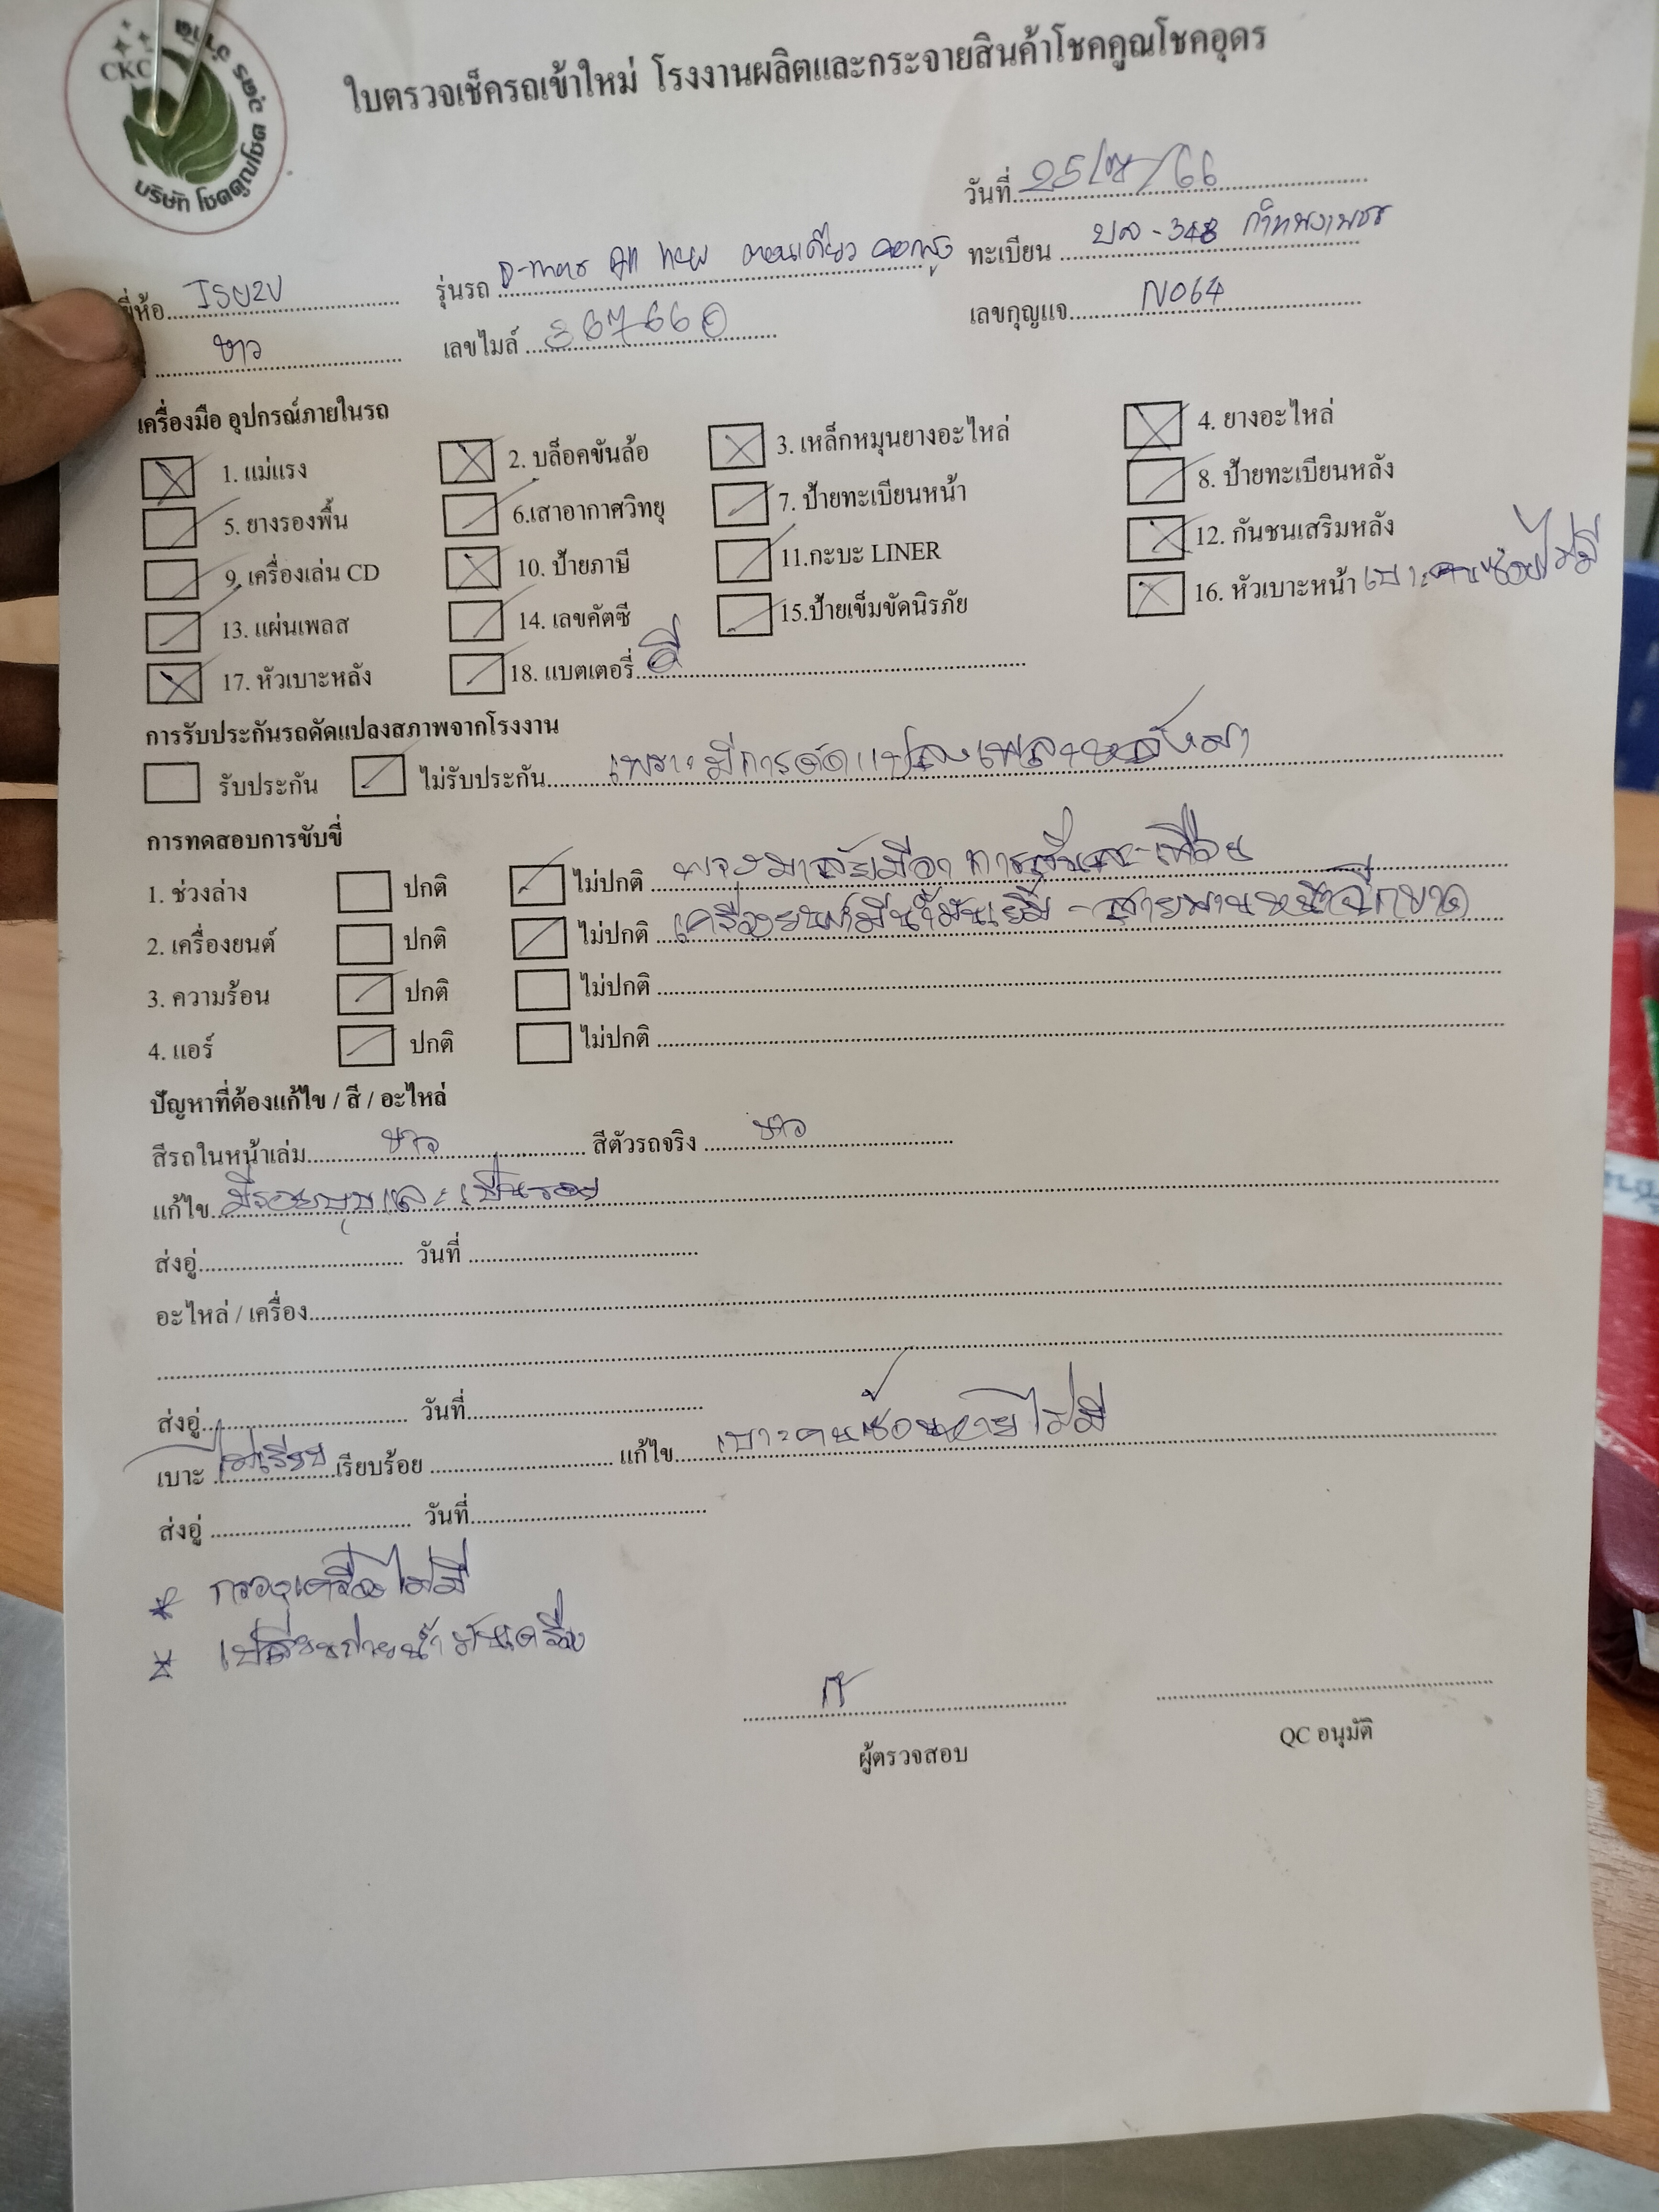 CKC
บริษัท โชคคูณโชค
ใบตรวจเช็ครถเข้าใหม่ โรงงานผลิตและกระจายสินค้าโชคคูณโชคอุดร
วันที่ 25/7/66
ยี่ห้อ ISUZU รุ่นรถ D-max All new ตอนเดียว ทะเบียน บล-348 กำแพงเพชร
ขาว เลขไมล์ 367660 เลขกุญแจ N064
เครื่องมือ อุปกรณ์ภายในรถ
1. แม่แรง 2. บล็อคขันล้อ 3. เหล็กหมุนยางอะไหล่ 4. ยางอะไหล่
5. ยางรองพื้น 6.เสาอากาศวิทยุ 7. ป้ายทะเบียนหน้า 8. ป้ายทะเบียนหลัง
9. เครื่องเล่น CD 10. ป้ายภาษี 11.กะบะ LINER 12. กันชนเสริมหลัง
13. แผ่นเพลส 14. เลขคัตซี 15.ป้ายเข็มขัดนิรภัย 16. หัวเบาะหน้า เบาะคนซ้อนไม่มี
17. หัวเบาะหลัง 18. แบตเตอรี่ ดี
การรับประกันรถดัดแปลงสภาพจากโรงงาน
รับประกัน ไม่รับประกัน เพราะมีการดัดแปลงเพลาหลังมา
การทดสอบการขับขี่
1. ช่วงล่าง ปกติ ไม่ปกติ พวงมาลัยมีอาการสั่นสะเทือน
2. เครื่องยนต์ ปกติ ไม่ปกติ เครื่องยนต์มีน้ำมันเยิ้ม - สายพานหน้าฉีกขาด
3. ความร้อน ปกติ ไม่ปกติ
4. แอร์ ปกติ ไม่ปกติ
ปัญหาที่ต้องแก้ไข / สี / อะไหล่
สีรถในหน้าเล่ม ขาว สีตัวรถจริง ขาว
แก้ไข มีรอยบุบและเป็นรอย
ส่งอู่ วันที่
อะไหล่ / เครื่อง
ส่งอู่ วันที่
เบาะ ไม่เรียบ เรียบร้อย แก้ไข เบาะคนซ้อนหายไม่มี
ส่งอู่ วันที่
* กรองเครื่องไม่มี
* เปลี่ยนถ่ายน้ำมันเครื่อง
ผู้ตรวจสอบ QC อนุมัติ